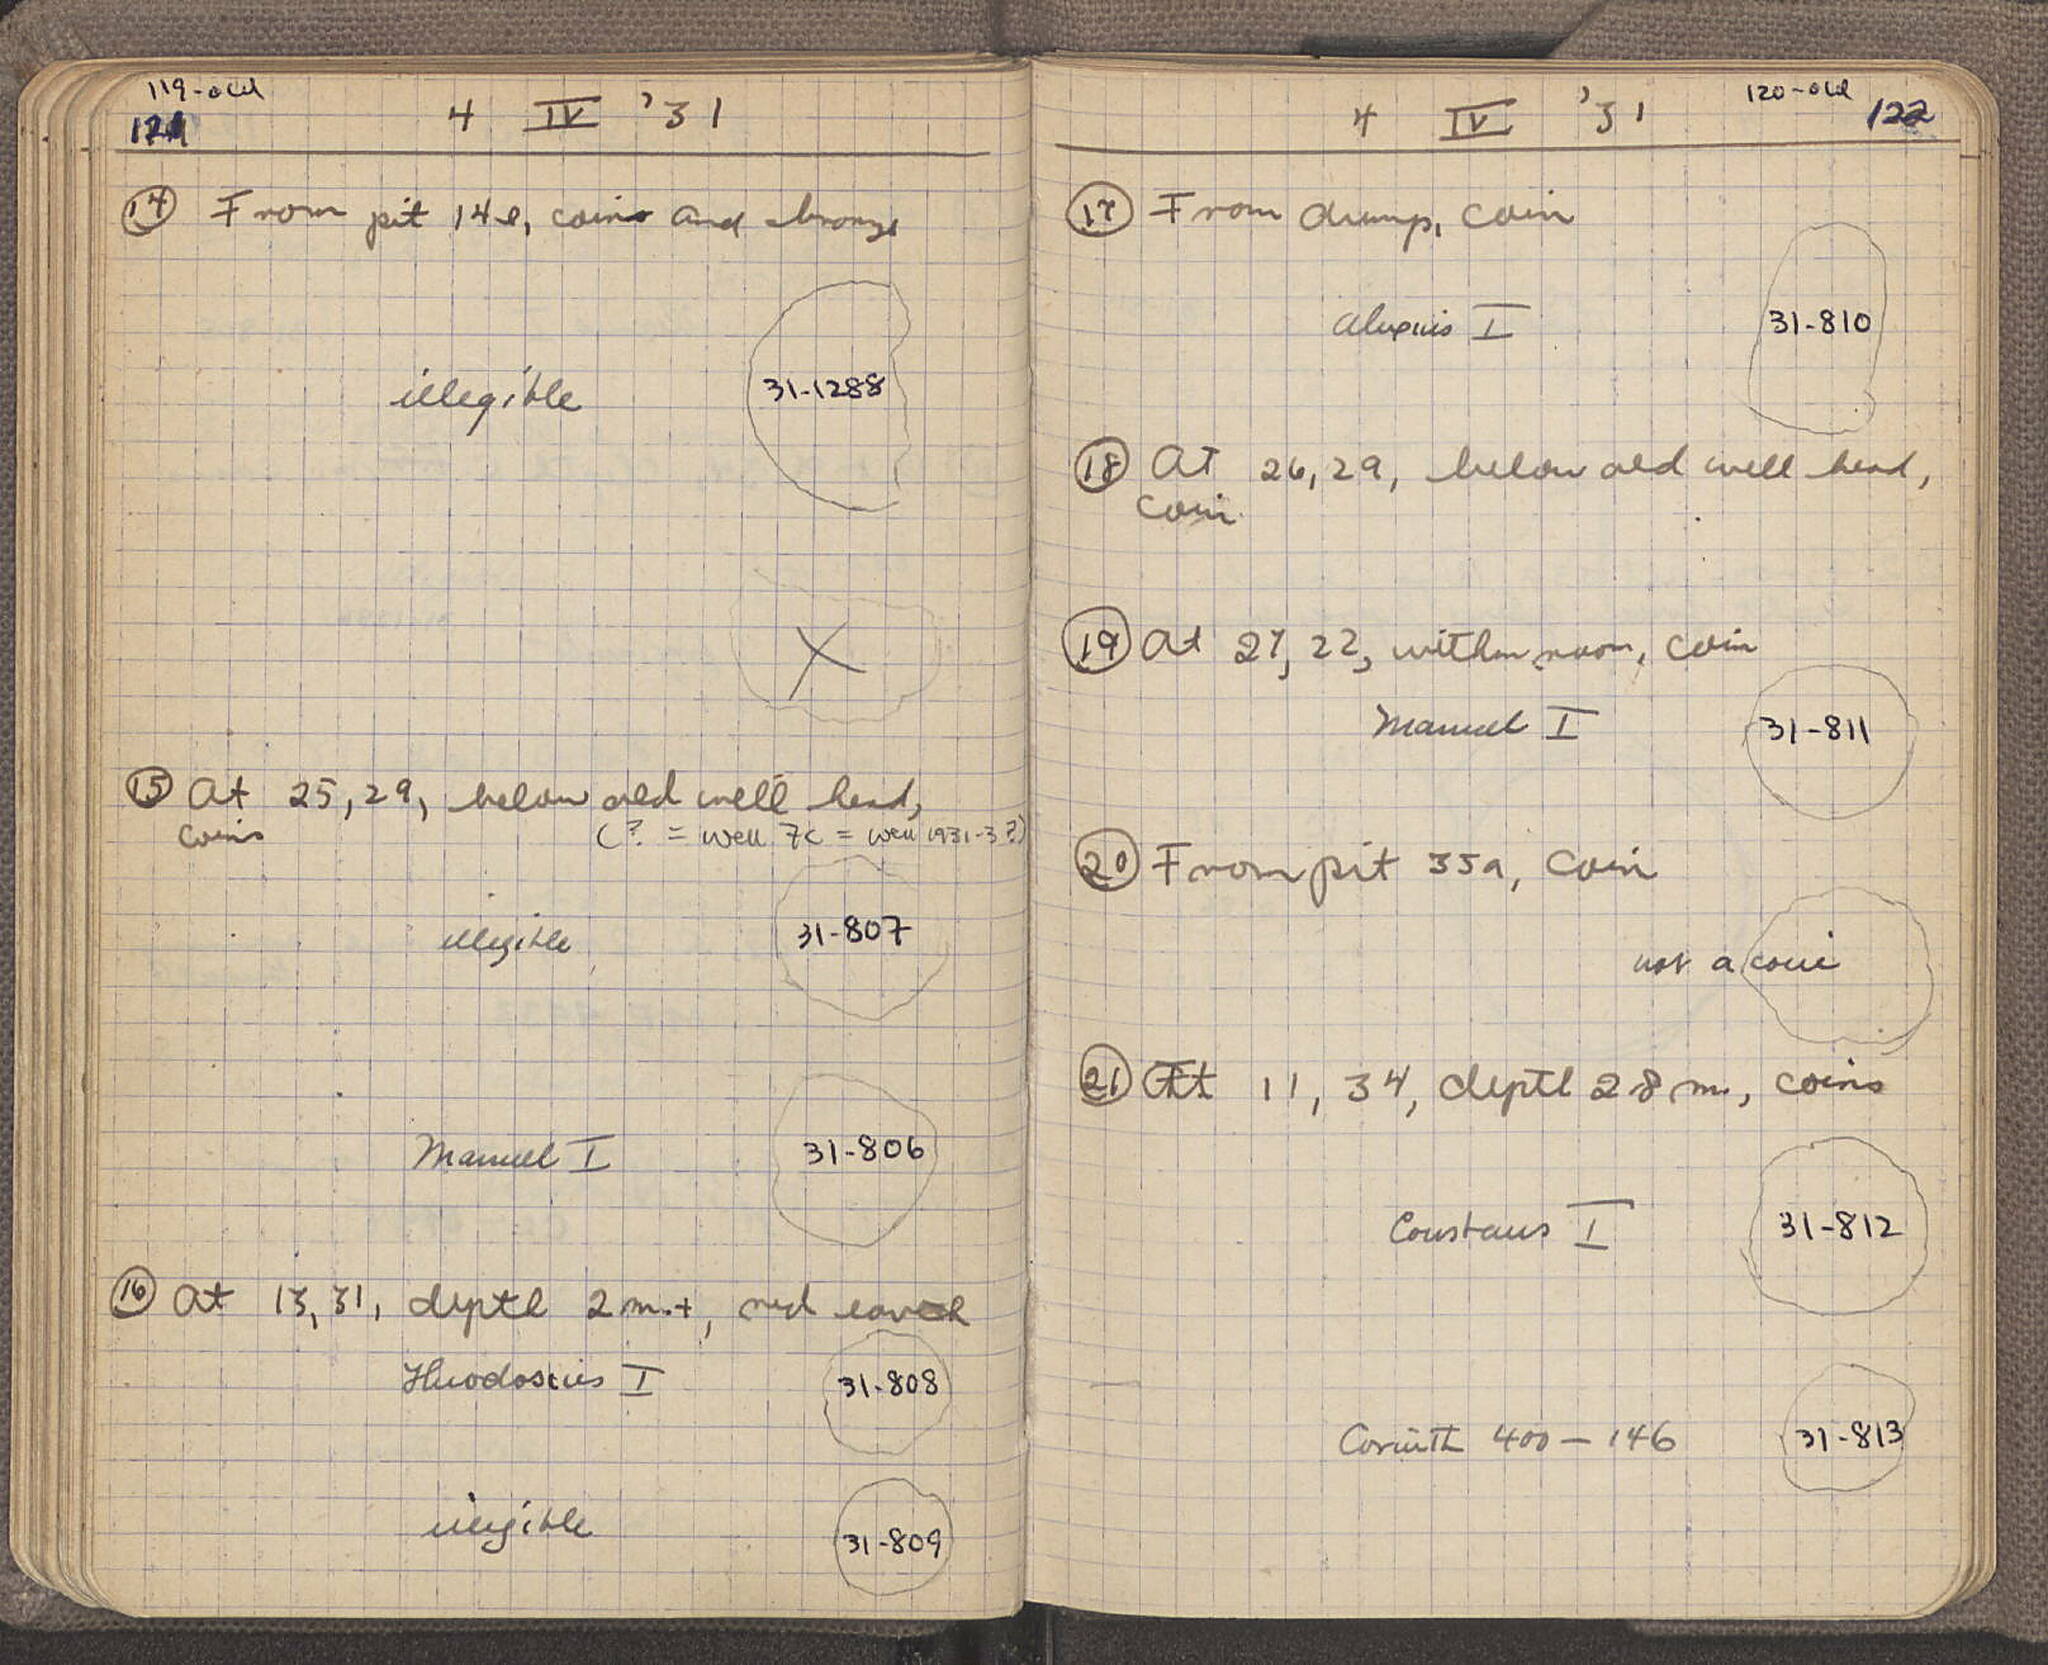 119-old
121
4 IV '31
14 From pit 14e, coins and bronze
illegible
31-1288
X
15 At 25,29, below old well head,
coins
(? = well 7c = well 1931-3?)
illegible
31-807
Manuel I
31-806
16 At 13,31, depth 2 m.+, red earth
Theodosius I
31-808
illegible
31-809
4 IV '31
120-old
122
17 From dump, coin
Alexius I
31-810
18 At 26,29, below old well head,
coin.
19 At 27,22, within room, coin
Manuel I
31-811
20 From pit 35a, coin
not a coin
21 At 11, 34, depth 28 m., coins
Constans I
31-812
Corinth 400-146
31-813